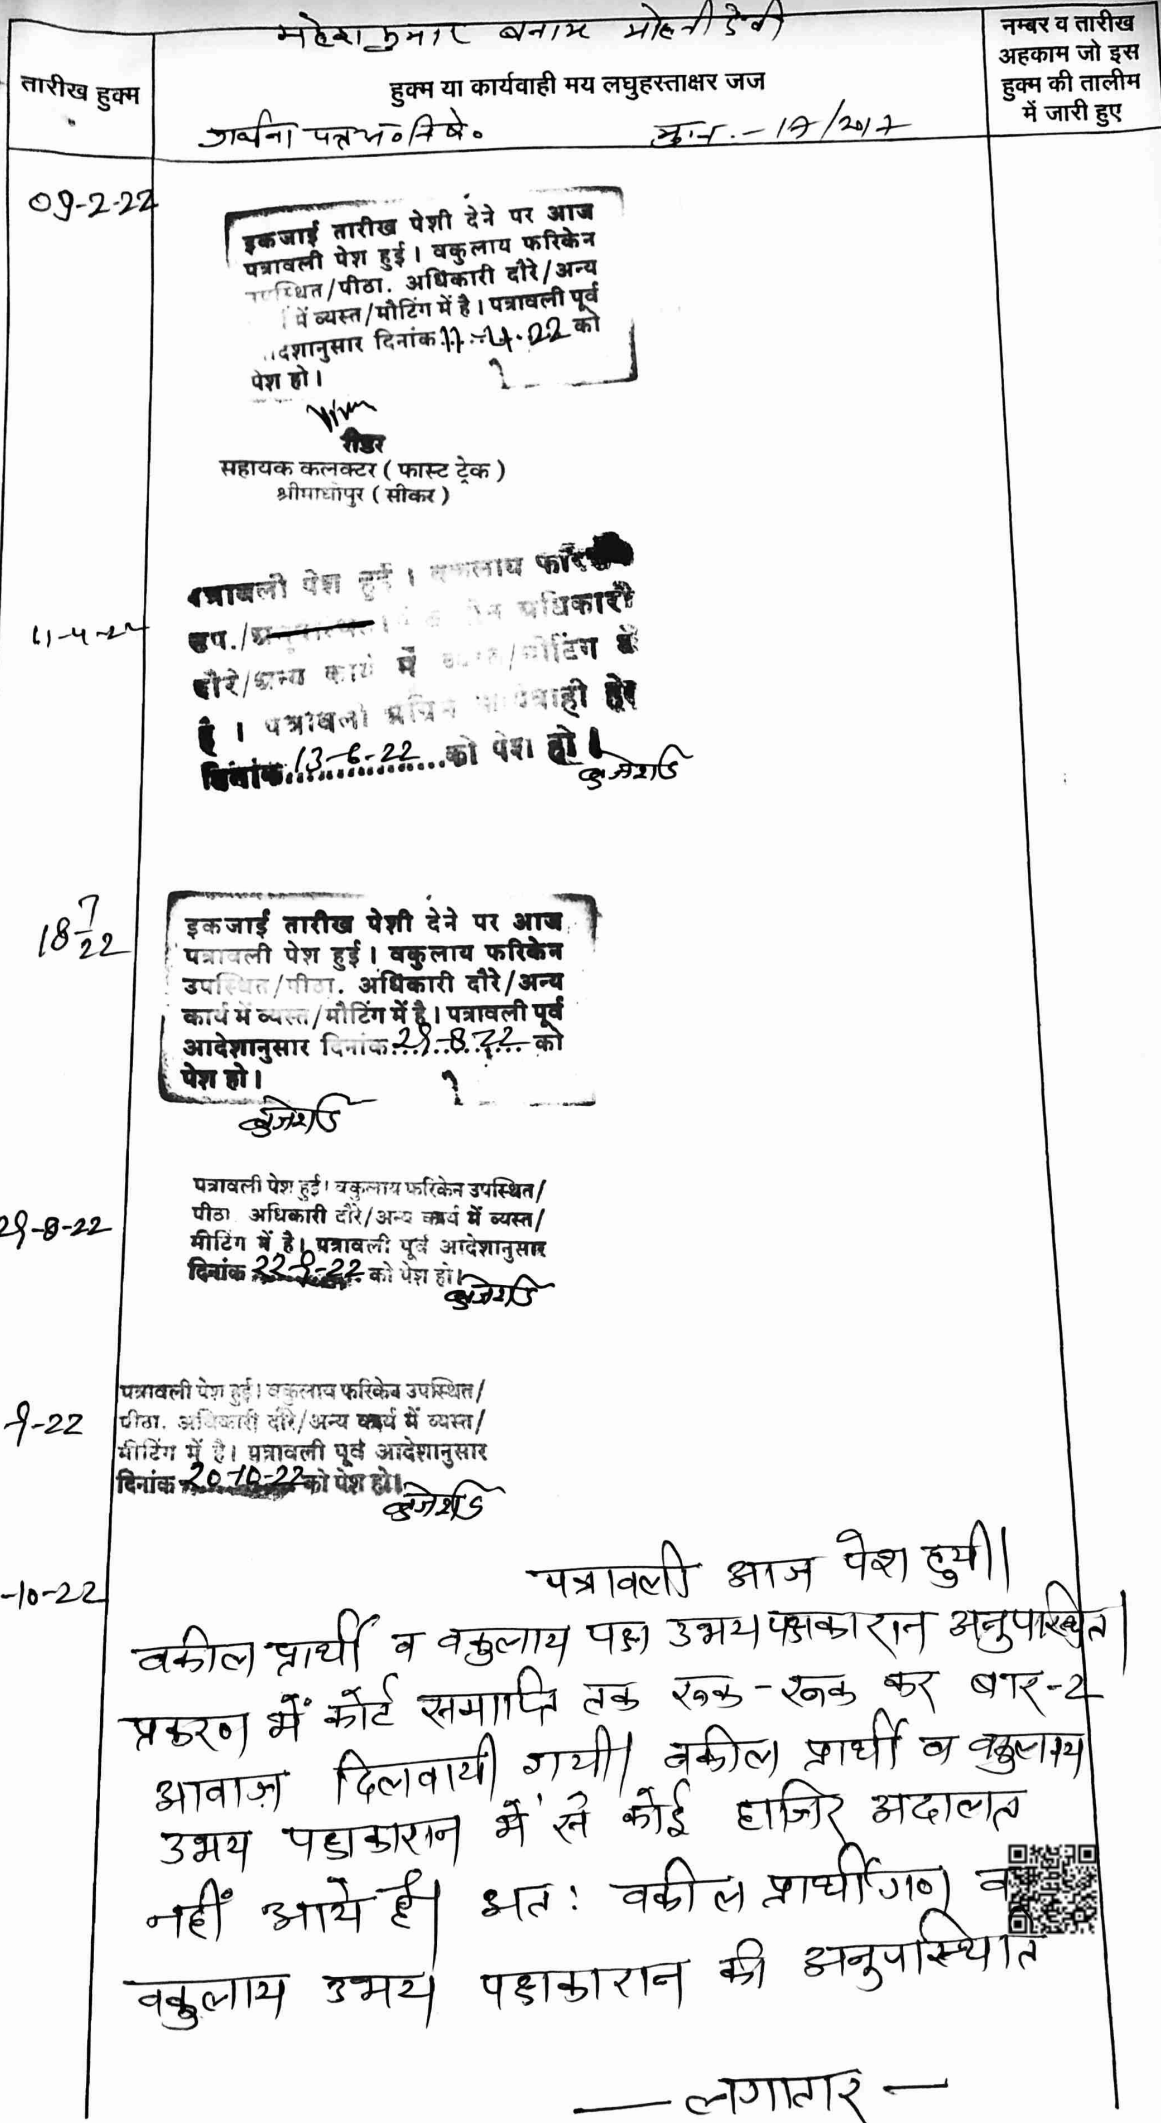 महेश कुमार बनाम मोहनी देवी
तारीख हुक्म
हुक्म या कार्यवाही मय लघुहस्ताक्षर जज
नम्बर व तारीख
अहकाम जो इस
हुक्म की तालीम
में जारी हुए
- 17/2017
09-2-22
इकजाई तारीख पेशी देने पर आज
पत्रावली पेश हुई। वकुलाय फरिकेन
/पीठा. अधिकारी दौरे/अन्य
में व्यस्त/मीटिंग में है। पत्रावली पूर्व
दिनांक 11-4-22 को
पेश हो।
रीडर
सहायक कलक्टर ( फास्ट ट्रेक )
श्रीमाधोपुर ( सीकर )
11-4-22
पत्रावली पेश हुई। वकुलाय
उप./
दौरे/अन्य कार्य में /मीटिंग में
है। पत्रावली
दिनांक 13-6-22 को पेश हो।
18 7/22
इकजाई तारीख पेशी देने पर आज
पत्रावली पेश हुई। वकुलाय फरिकेन
उपस्थित/पीठा. अधिकारी दौरे/अन्य
कार्य में व्यस्त/मीटिंग में है। पत्रावली पूर्व
आदेशानुसार दिनांक 29-8-22 को
पेश हो।
29-8-22
पत्रावली पेश हुई। वकुलाय फरिकेन उपस्थित/
पीठा. अधिकारी दौरे/अन्य कार्य में व्यस्त/
मीटिंग में है। पत्रावली पूर्व आदेशानुसार
दिनांक 22-9-22 को पेश हो।
9-22
पत्रावली पेश हुई। वकुलाय फरिकेन उपस्थित/
पीठा. अधिकारी दौरे/अन्य कार्य में व्यस्त/
मीटिंग में है। पत्रावली पूर्व आदेशानुसार
दिनांक 20-10-22 को पेश हो।
-10-22
पत्रावली आज पेश हुयी।
वकील प्रार्थी व वकुलाय पक्ष उभय पक्षकारान अनुपस्थित।
प्रकरण में कोर्ट समाप्ति तक रूक-रूक कर बार-2
आवाज़ दिलवायी गयी। वकील प्रार्थी व वकुलाय
उभय पक्षकारान में से कोई हाजिर अदालत
नहीं आये हैं। अत: वकील प्रार्थीगण व
वकुलाय उभय पक्षकारान की अनुपस्थिति
— लगातार —